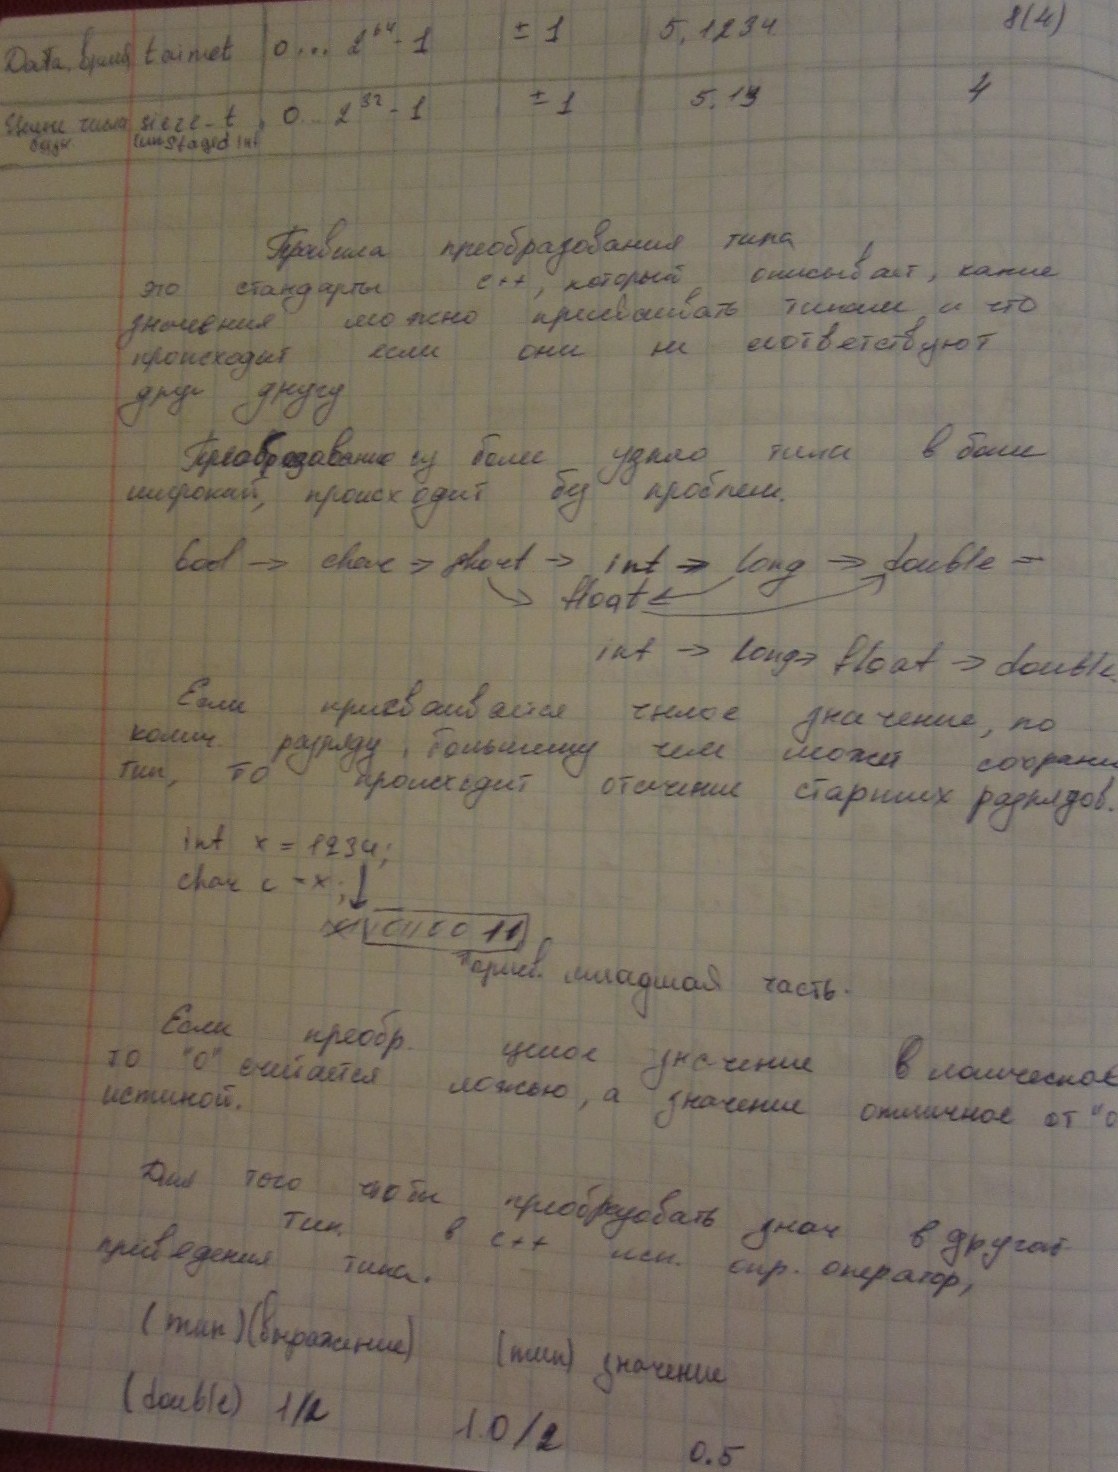 Data, время taimet 0... 2^64-1 ± 1 5, 1234 8(4)
числа sieze-t 0... 2^32-1 ± 1 5.19 4
(unstaged int
Правила преобразования типа
это стандарты с++, который описывает, какие
значения можно присваивать типам и что
происходит если они не соответствуют
друг другу
Преобразование из более узкого типа в более
широкий, происходит без проблем.
bool -> char -> short -> int -> long -> double
float
int -> long -> float -> double
Если присваивается целое значение, по
колич. разряду большему чем может сохрани
тип, то происходит отсечение старших разрядов.
int x = 1234;
char c = x;
присв. младшая часть.
Если преобр. целое значение в логическое
то "0" считается ложью, а значение отличное от "0
истиной.
Для того чтобы преобразовать знач в другой
тип. в с++ исп. опр. оператор,
приведения типа.
(тип)(выражение) (тип) значение
(double) 1/2 1.0/2 0.5